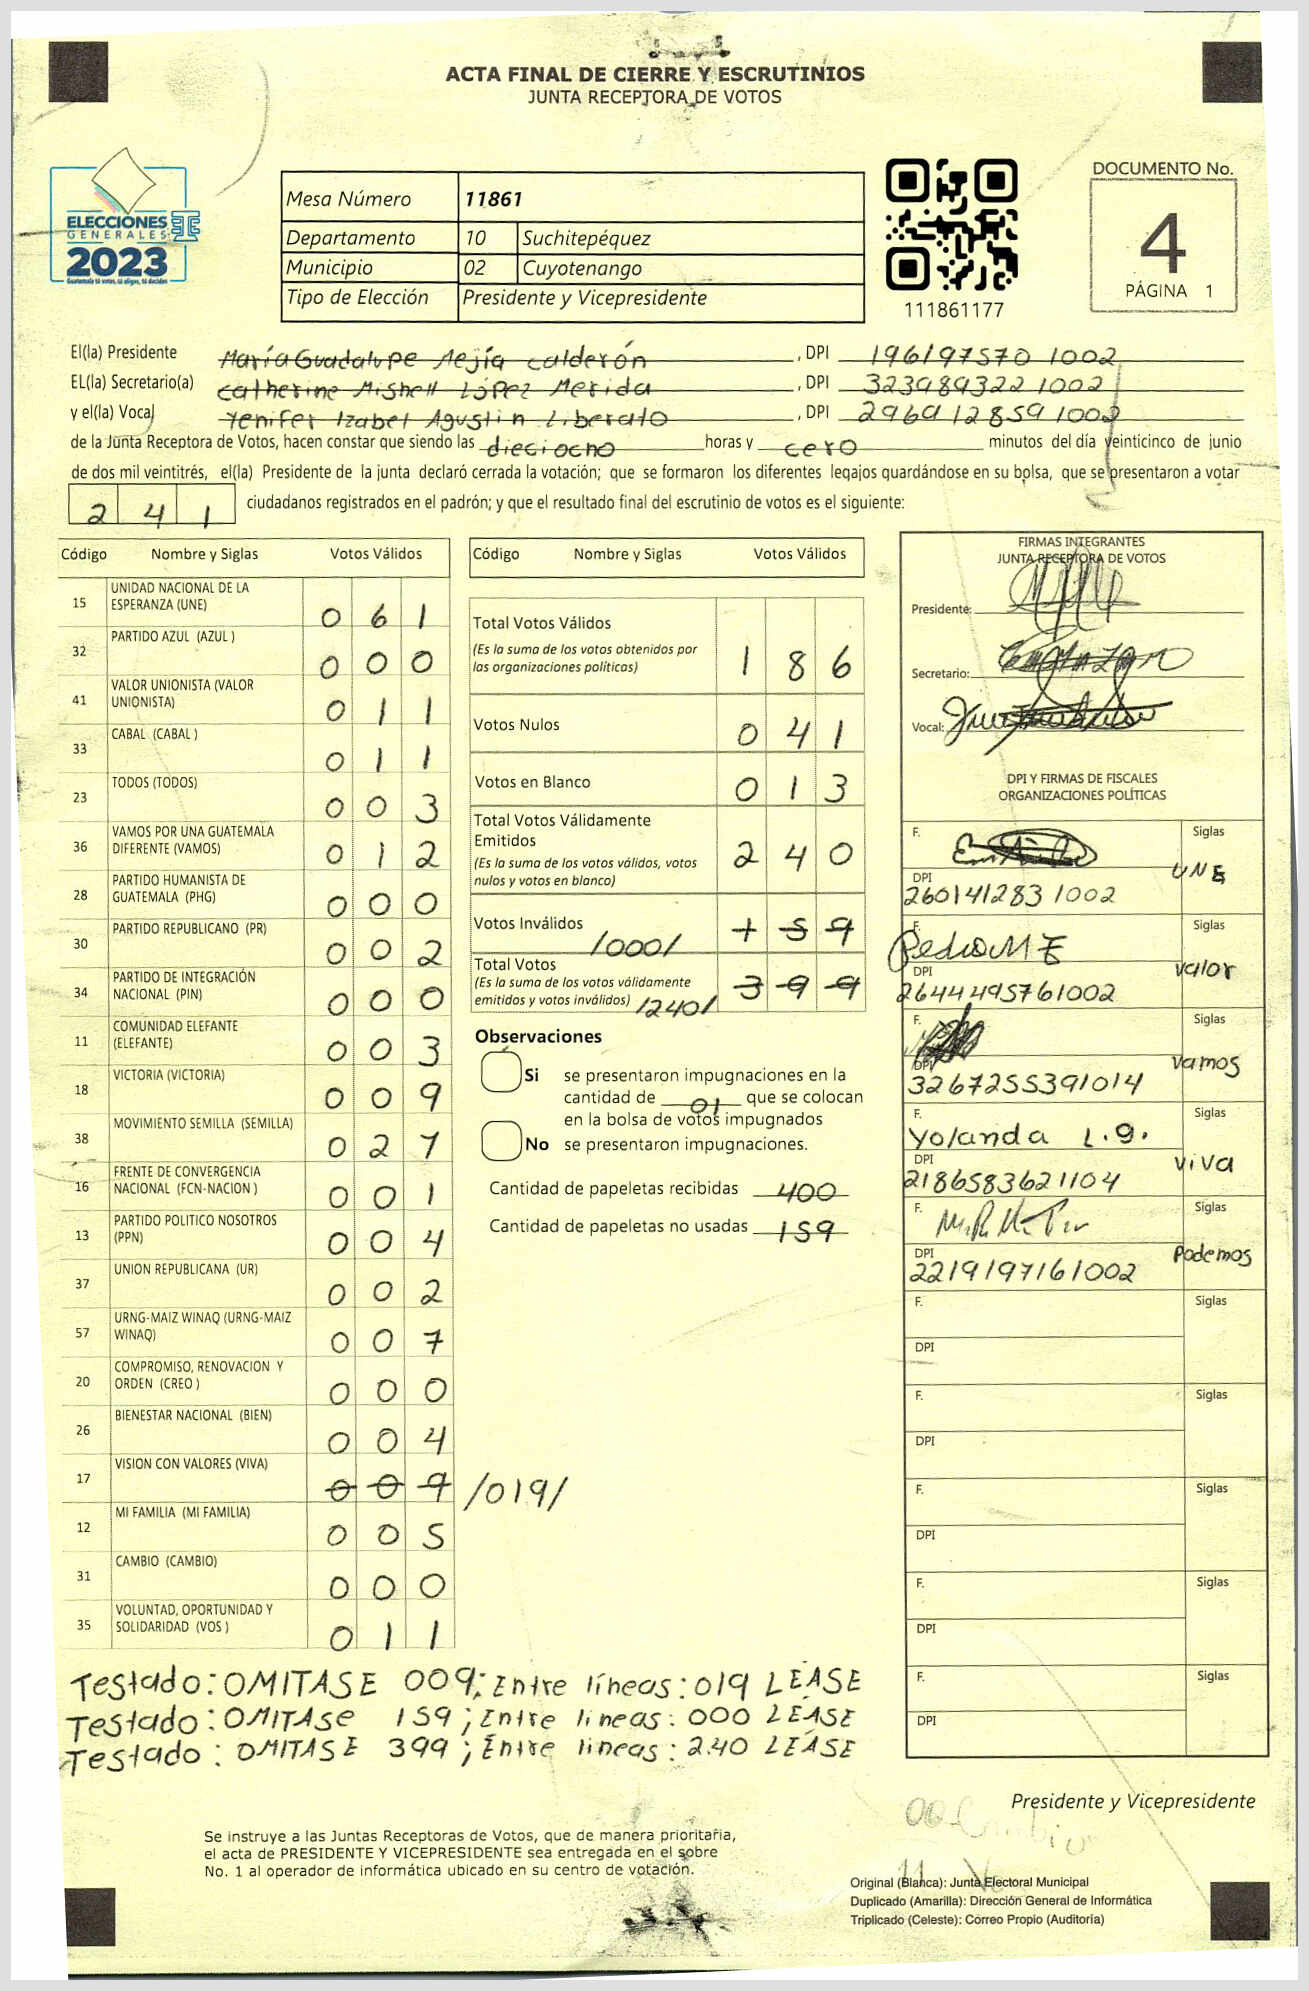 ACTA FINAL DE CIERRE Y ESCRUTINIOS
JUNTA RECEPTORA DE VOTOS
ELECCIONES
GENERALES
2023
Guatemala tú votas, tú eliges, tú decides
Mesa Número 11861
Departamento 10 Suchitepéquez
Municipio 02 Cuyotenango
Tipo de Elección Presidente y Vicepresidente
111861177
DOCUMENTO No.
4
PÁGINA 1
El(la) Presidente María Guadalupe Mejía Calderón , DPI 196197570 1002
EL(la) Secretario(a) Catherine Mishell López Merida , DPI 323989322 1002
y el(la) Vocal Yenifer Izabel Agustin Liberato , DPI 296912859 1002
de la Junta Receptora de Votos, hacen constar que siendo las dieciocho horas y cero minutos del día veinticinco de junio
de dos mil veintitrés, el(la) Presidente de la junta declaró cerrada la votación; que se formaron los diferentes legajos guardándose en su bolsa, que se presentaron a votar
241 ciudadanos registrados en el padrón; y que el resultado final del escrutinio de votos es el siguiente:
Código Nombre y Siglas Votos Válidos
15 UNIDAD NACIONAL DE LA ESPERANZA (UNE) 061
32 PARTIDO AZUL (AZUL ) 000
41 VALOR UNIONISTA (VALOR UNIONISTA) 011
33 CABAL (CABAL ) 011
23 TODOS (TODOS) 003
36 VAMOS POR UNA GUATEMALA DIFERENTE (VAMOS) 012
28 PARTIDO HUMANISTA DE GUATEMALA (PHG) 000
30 PARTIDO REPUBLICANO (PR) 002
34 PARTIDO DE INTEGRACIÓN NACIONAL (PIN) 000
11 COMUNIDAD ELEFANTE (ELEFANTE) 003
18 VICTORIA (VICTORIA) 009
38 MOVIMIENTO SEMILLA (SEMILLA) 027
16 FRENTE DE CONVERGENCIA NACIONAL (FCN-NACION ) 001
13 PARTIDO POLITICO NOSOTROS (PPN) 004
37 UNION REPUBLICANA (UR) 002
57 URNG-MAIZ WINAQ (URNG-MAIZ WINAQ) 007
20 COMPROMISO, RENOVACION Y ORDEN (CREO ) 000
26 BIENESTAR NACIONAL (BIEN) 004
17 VISION CON VALORES (VIVA) 009 /019/
12 MI FAMILIA (MI FAMILIA) 005
31 CAMBIO (CAMBIO) 000
35 VOLUNTAD, OPORTUNIDAD Y SOLIDARIDAD (VOS ) 011
Código Nombre y Siglas Votos Válidos
Total Votos Válidos 186
(Es la suma de los votos obtenidos por
las organizaciones políticas)
Votos Nulos 041
Votos en Blanco 013
Total Votos Válidamente
Emitidos 240
(Es la suma de los votos válidos, votos
nulos y votos en blanco)
Votos Inválidos /000/ 159
Total Votos
(Es la suma de los votos válidamente
emitidos y votos inválidos) /240/ 399
Observaciones
Si se presentaron impugnaciones en la
cantidad de 01 que se colocan
en la bolsa de votos impugnados
No se presentaron impugnaciones.
Cantidad de papeletas recibidas 400
Cantidad de papeletas no usadas 159
FIRMAS INTEGRANTES
JUNTA RECEPTORA DE VOTOS
Presidente:
Secretario:
Vocal:
DPI Y FIRMAS DE FISCALES
ORGANIZACIONES POLÍTICAS
F. Siglas
UNE
DPI
260141283 1002
F. Siglas
Pedro M E
valor
DPI
2644495761002
F. Siglas
vamos
DPI
3267255391014
F. Siglas
Yolanda L.g.
viva
DPI
2186583621104
F. Siglas
Podemos
DPI
2219197161002
F. Siglas
DPI
F. Siglas
DPI
F. Siglas
DPI
F. Siglas
DPI
F. Siglas
DPI
Testado: OMITASE 009; Entre líneas: 019 LÉASE
Testado: OMITASE 159; Entre lineas: 000 LÉASE
Testado: OMITASE 399; Entre lineas: 240 LÉASE
Presidente y Vicepresidente
00 Cambio
11
Se instruye a las Juntas Receptoras de Votos, que de manera prioritaria,
el acta de PRESIDENTE Y VICEPRESIDENTE sea entregada en el sobre
No. 1 al operador de informática ubicado en su centro de votación.
Original (Blanca): Junta Electoral Municipal
Duplicado (Amarilla): Dirección General de Informática
Triplicado (Celeste): Correo Propio (Auditoría)